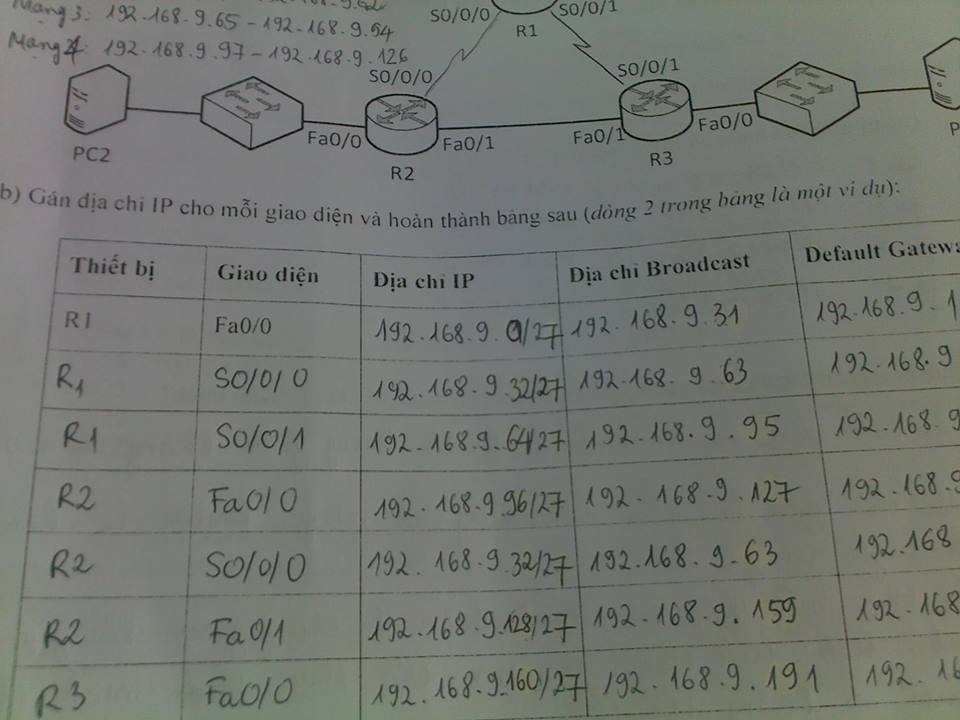 Mạng 3: 192.168.9.65 - 192.168.9.94
Mạng 4: 192.168.9.97 - 192.168.9.126
S0/0/0 S0/0/1
R1
S0/0/0 S0/0/1
Fa0/0 Fa0/1 Fa0/1 Fa0/0
PC2 R2 R3
b) Gán địa chỉ IP cho mỗi giao diện và hoàn thành bảng sau (dòng 2 trong bảng là một ví dụ):
Thiết bị Giao diện Địa chỉ IP Địa chỉ Broadcast Default
R1 Fa0/0 192.168.9.0/27 192.168.9.31 192.168.9.1
R1 S0/0/0 192.168.9.32/27 192.168.9.63 192.168.9
R1 S0/0/1 192.168.9.64/27 192.168.9.95 192.168.9
R2 Fa0/0 192.168.9.96/27 192.168.9.127 192.168.9
R2 S0/0/0 192.168.9.32/27 192.168.9.63 192.168
R2 Fa0/1 192.168.9.128/27 192.168.9.159 192.168
R3 Fa0/0 192.168.9.160/27 192.168.9.191 192.16